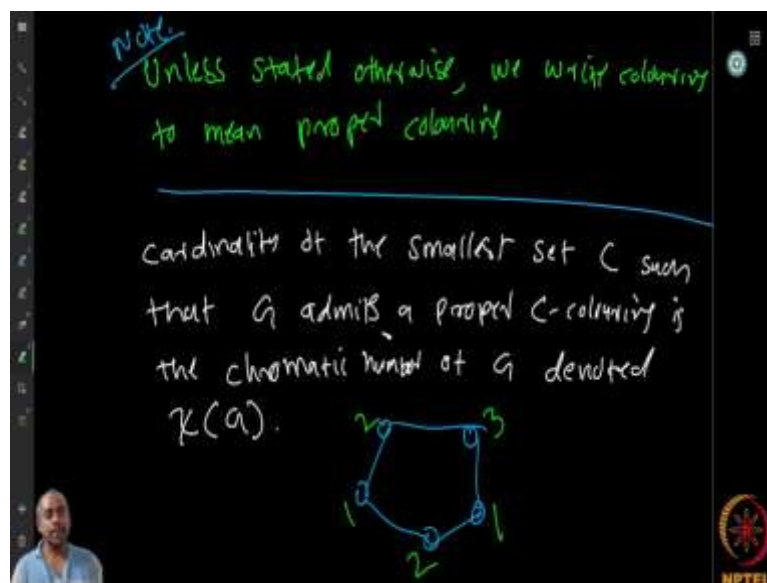 Note.
Unless stated otherwise, we write colouring
to mean proper colouring
Cardinality of the smallest set C such
that G admits a proper C-colouring is
the chromatic number of G denoted
χ(G).
2 3
1 1
2
NPTEL